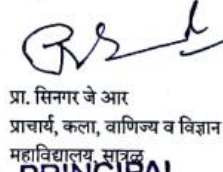 प्रा. सिनगर जे आर
प्राचार्य, कला, वाणिज्य व विज्ञान
महाविद्यालय, सात्रळ
PRINCIPAL